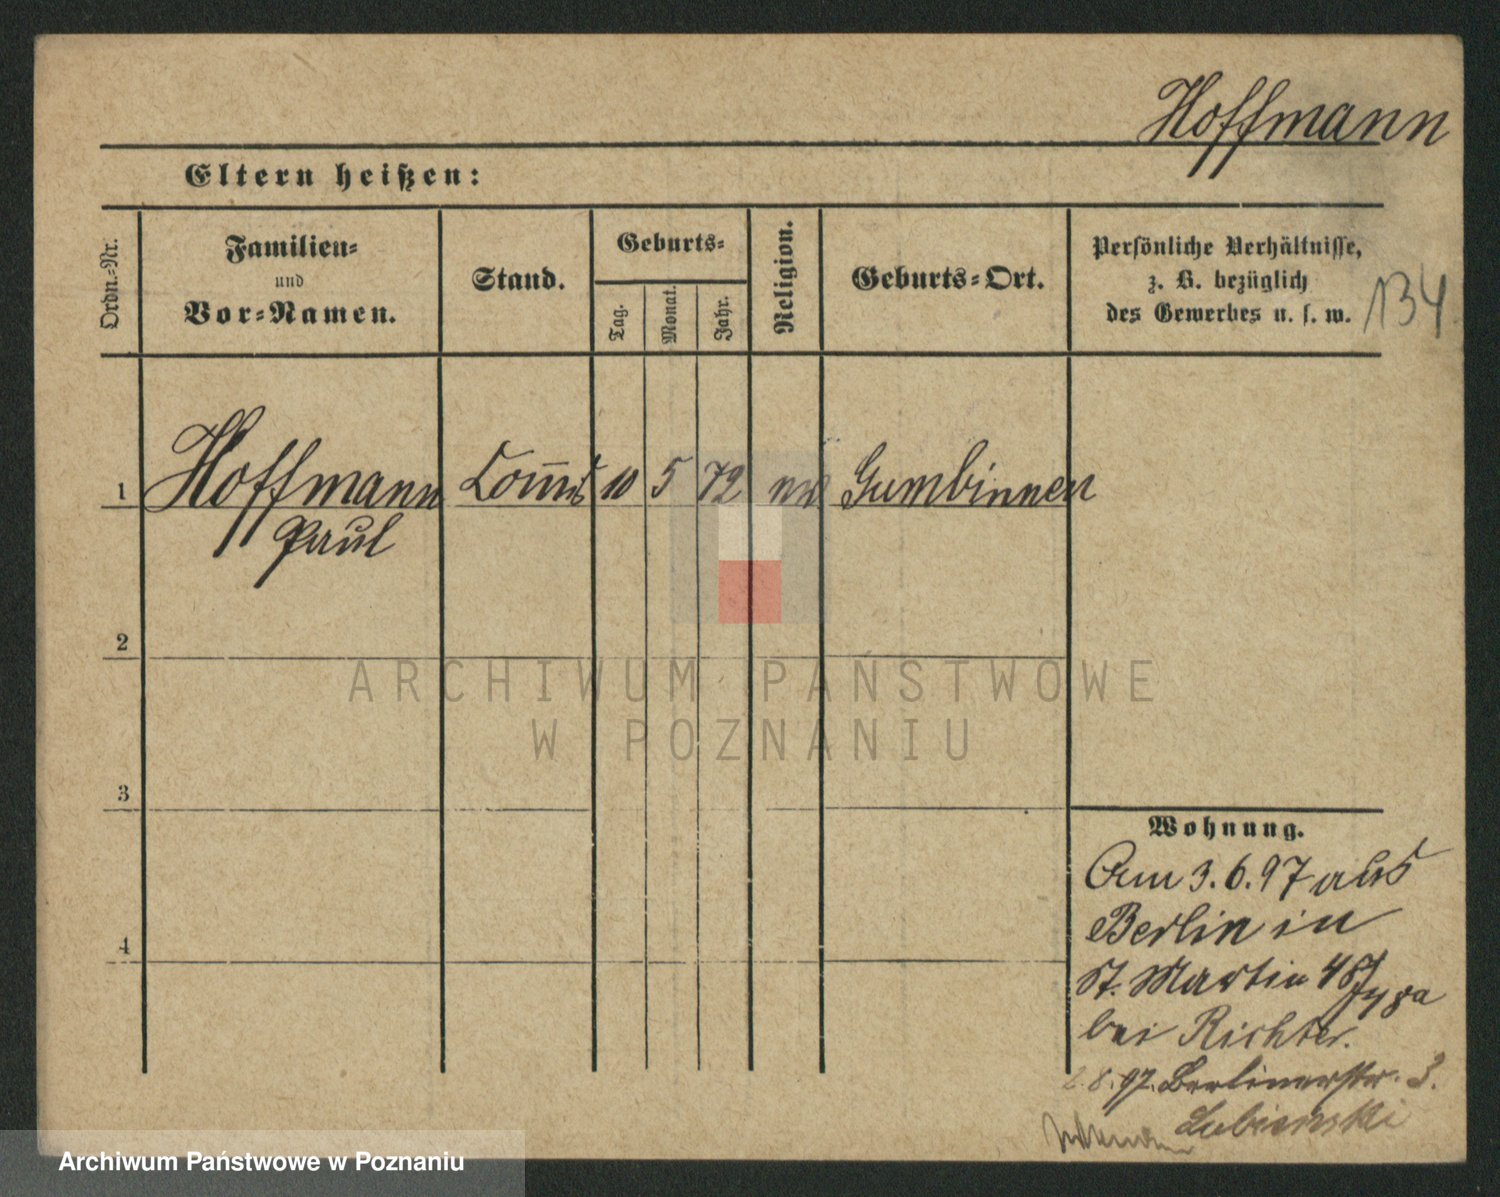 Hoffmann
Eltern heißen:
Ordn.-Nr.
Familien-
und
Vor-Namen.
Stand.
Geburts-
Tag.
Monat.
Jahr.
Religion.
Geburts-Ort.
Persönliche Verhältnisse,
z. B. bezüglich
des Gewerbes u. s. w.
134
1 Hoffmann 10 5 72 Gumbinnen
Paul
2
3
4
Wohnung.
Am 3.6.97 aus
Berlin in
St. Martin
bei Richter.
8.97. Berlinerstr. 3.
Lubienski
ARCHIWUM PAŃSTWOWE
W POZNANIU
Archiwum Państwowe w Poznaniu